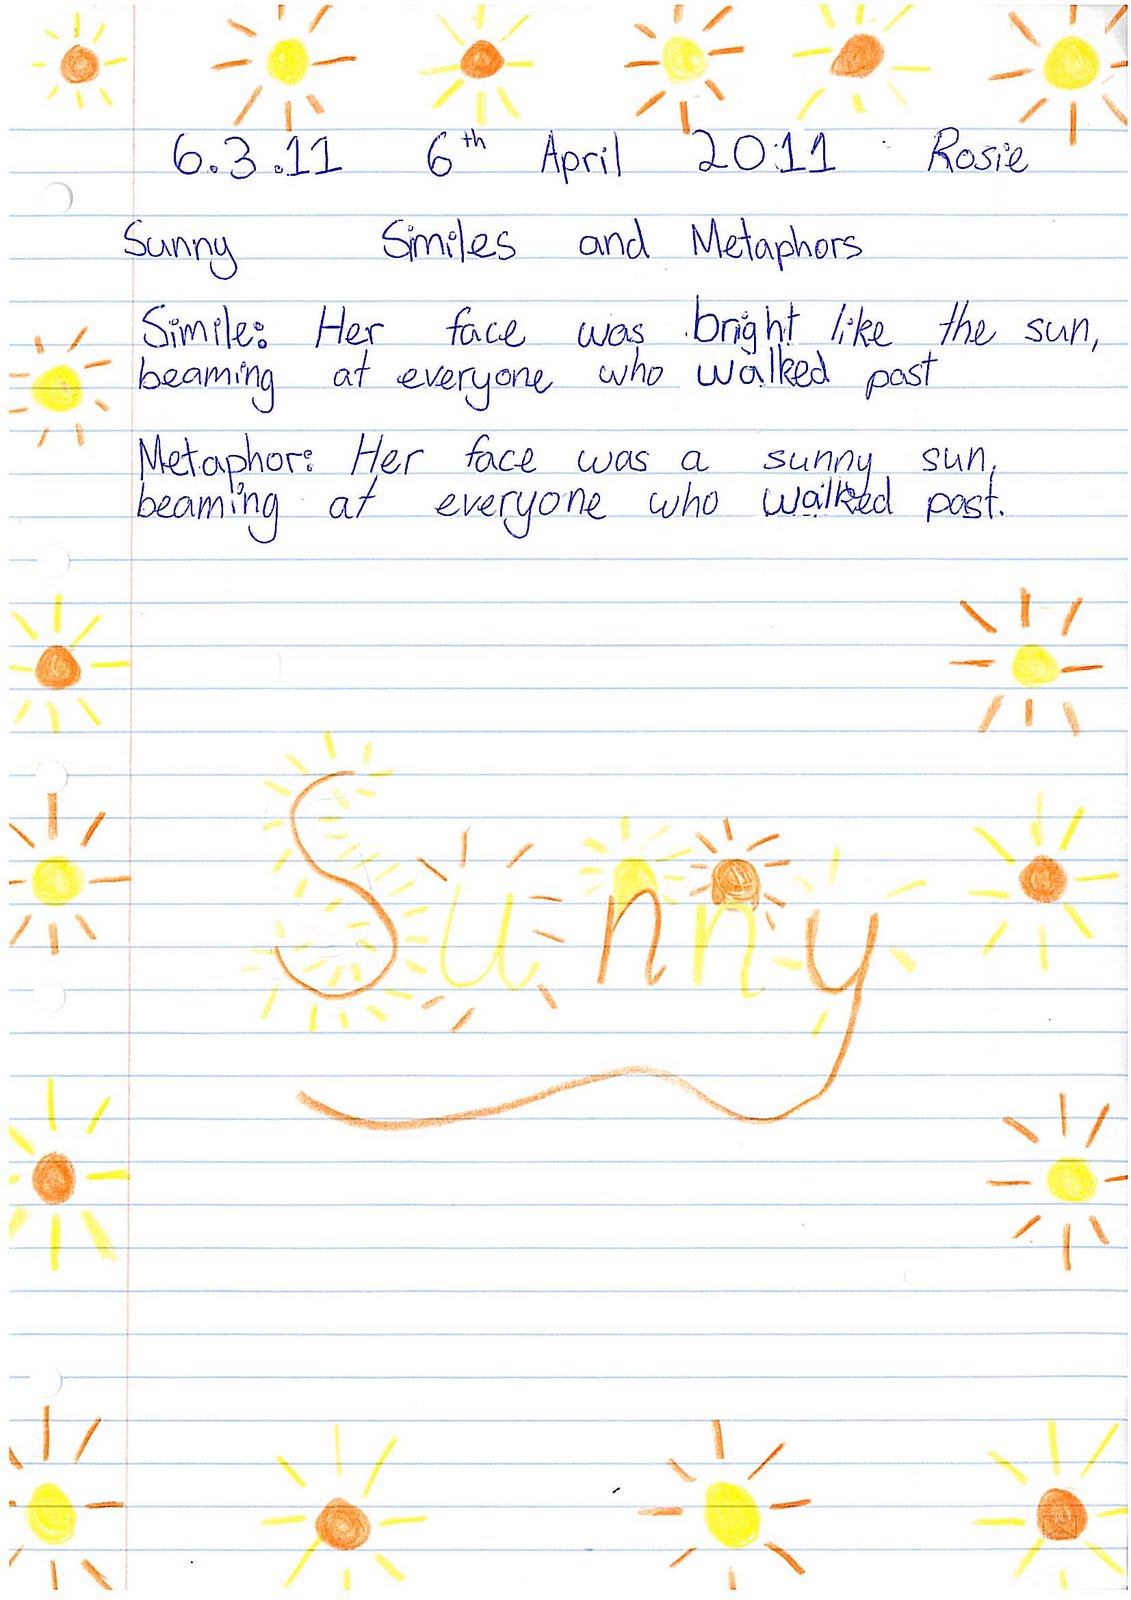 6.3.11 6th April 2011 Rosie
Sunny Similes and Metaphors
Simile: Her face was bright like the sun,
beaming at everyone who walked past
Metaphor: Her face was a sunny sun,
beaming at everyone who walked past.
Sunny